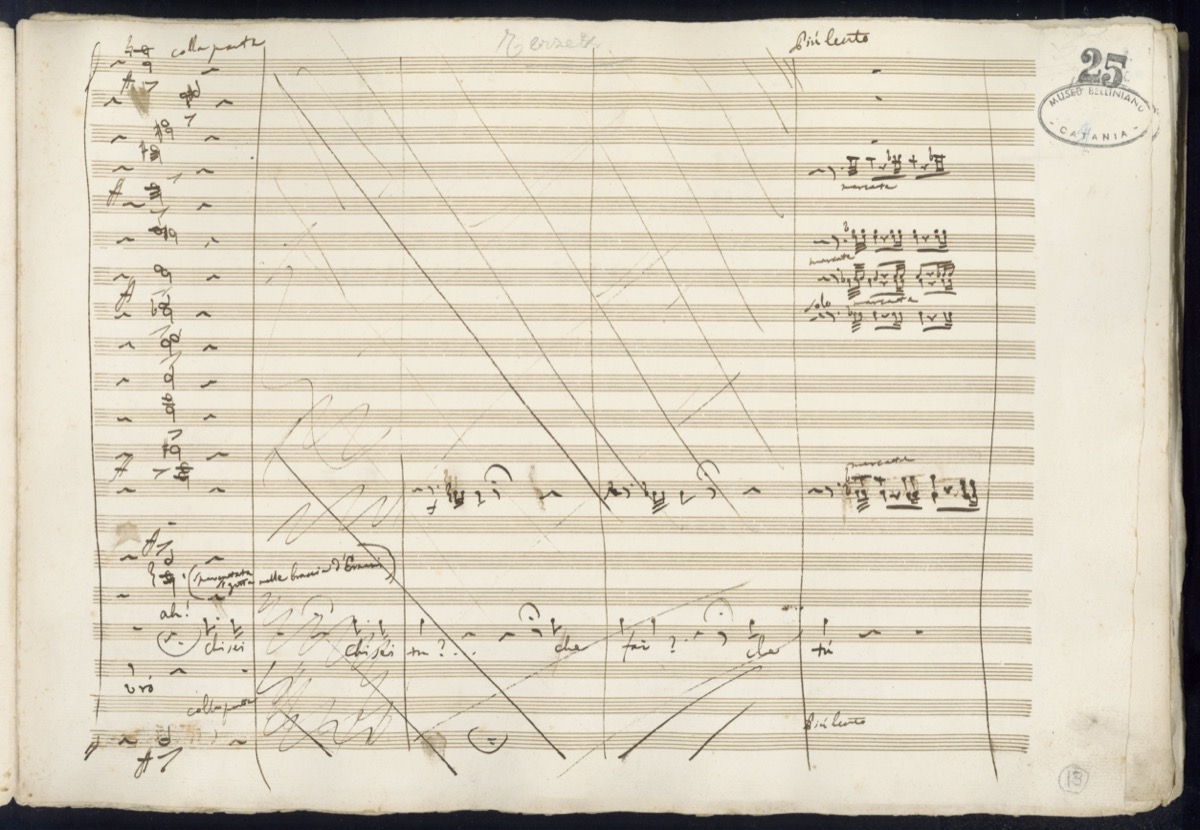 colla parte
Terzetto
Più lento
25
MUSEO BELLINIANO
- CATANIA -
marcate
marcate
solo marcate
marcate
(spaventata si getta nelle braccia d'Ernani)
ah!
chi sei chi sei tu?... che fai? che tu
vrò
colla parte
Più lento
13